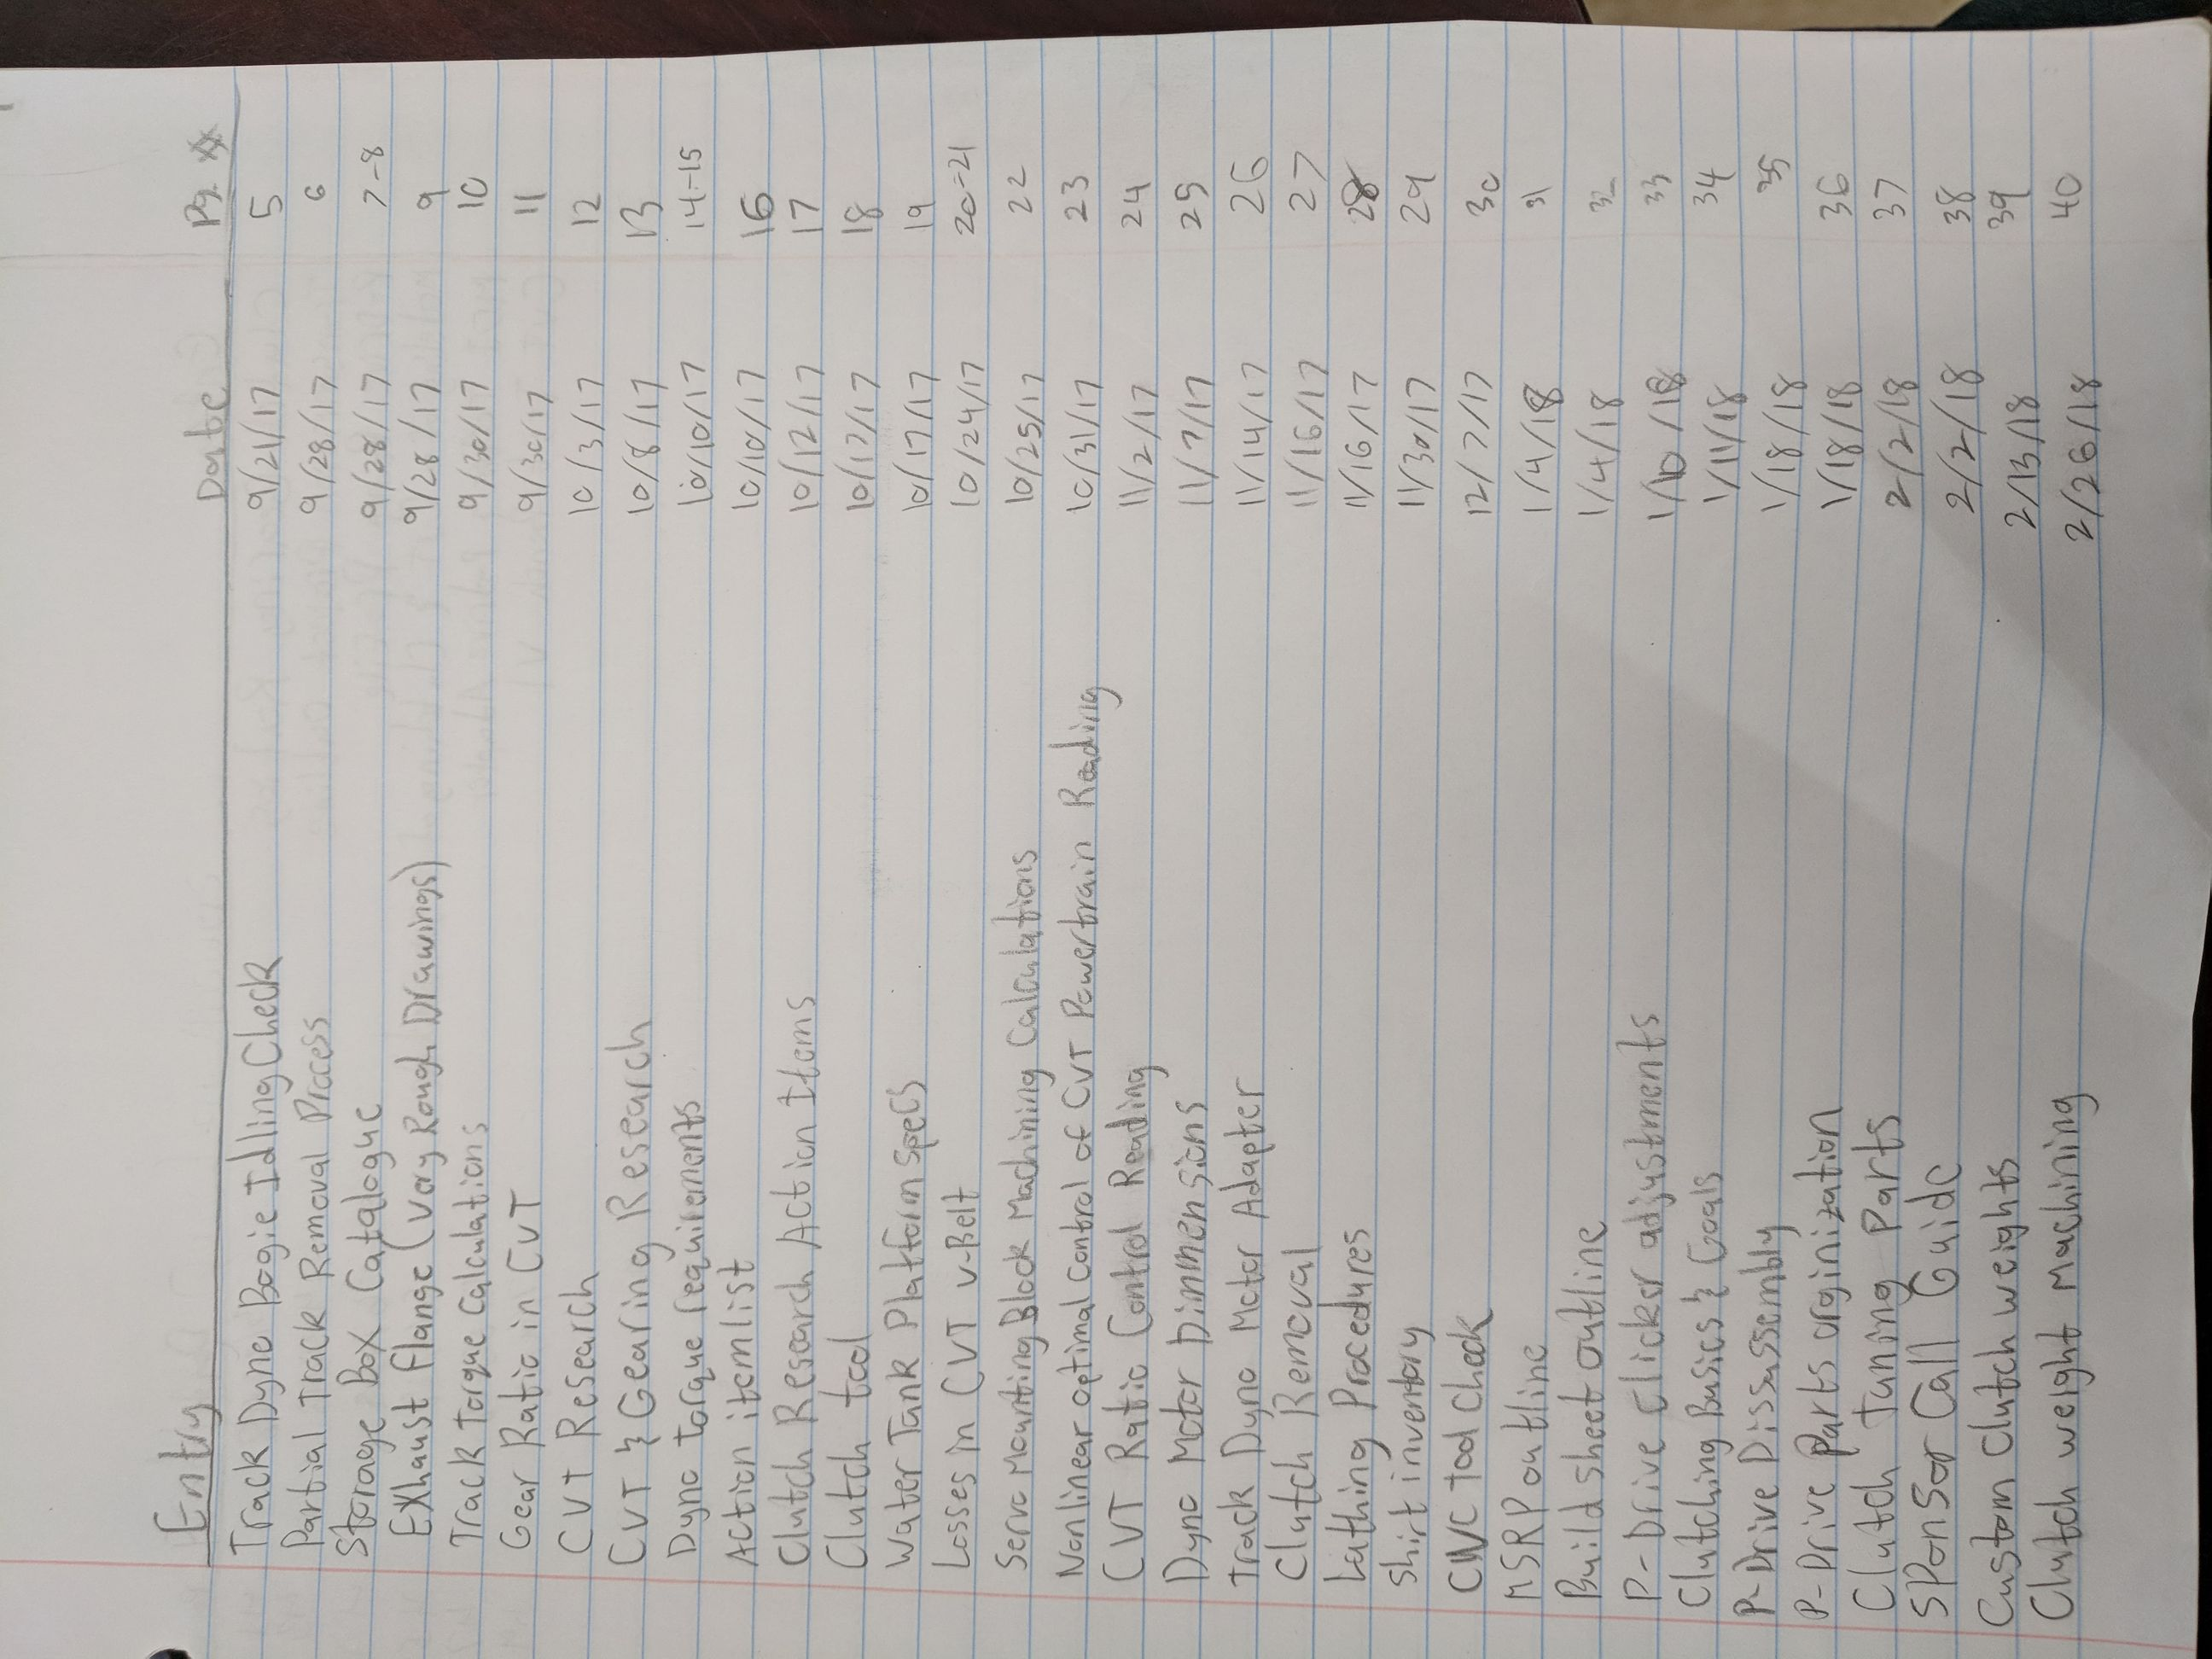 Entry Date Pg #
Track Dyno Bogie Idling Check 9/21/17 5
Partial Track Removal Process 9/28/17 6
Storage Box Catalogue 9/28/17 7-8
Exhaust flange (very Rough Drawings) 9/28/17 9
Track Torque Calculations 9/30/17 10
Gear Ratio in CVT 9/30/17 11
CVT Research 10/3/17 12
CVT & Gearing Research 10/8/17 13
Dyno torque requirements 10/10/17 14-15
Action item list 10/10/17 16
Clutch Research Action Items 10/12/17 17
Clutch tool 10/17/17 18
Water Tank Platform Specs 10/17/17 19
Losses in CVT V-Belt 10/24/17 20-21
Servo Mounting Block Machining Calculations 10/25/17 22
Nonlinear optimal control of CVT Powertrain Reading 10/31/17 23
CVT Ratio Control Reading 11/2/17 24
Dyno Motor Dinmensions 11/7/17 25
Track Dyno Motor Adapter 11/14/17 26
Clutch Removal 11/16/17 27
Lathing Procedures 11/16/17 28
Shirt inventory 11/30/17 29
CWC tool check 12/7/17 30
MSRP outline 1/4/18 31
Build sheet outline 1/4/18 32
P-Drive clicker adjustments 1/10/18 33
Clutching Basics & Goals 1/11/18 34
P-Drive Dissassembly 1/18/18 35
P-Drive Parts orginization 1/18/18 36
Clutch Tuning Parts 2/2/18 37
Sponsor Call Guide 2/2/18 38
Custom Clutch weights 2/13/18 39
Clutch weight Machining 2/26/18 40